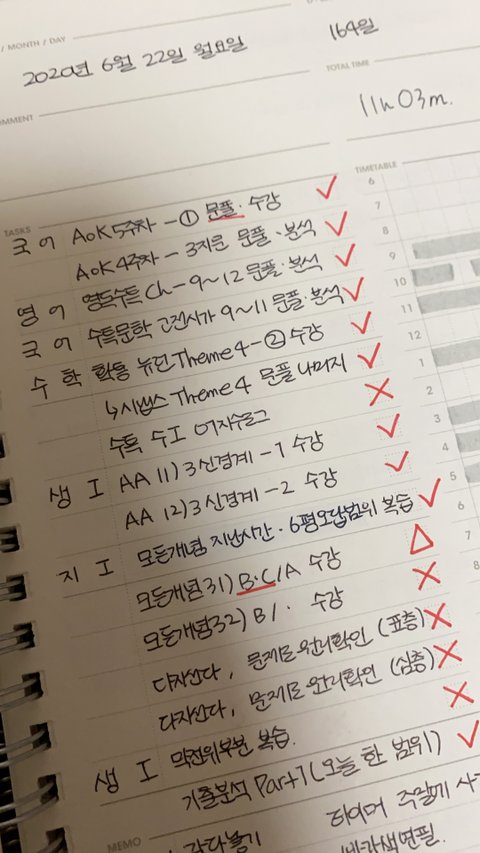 / MONTH / DAY
2020년 6월 22일 월요일
164일
TOTAL TIME
11h 03m.
OMMENT
TASKS
TIMETABLE
국어 AOK 5주차 - ① 문풀· 수강
AOK 4주차 - 3지문 문풀·분석
영어 영독수특 Ch - 9~12 문풀·분석
국어 수특문학 고전시가 9~11 문풀·분석
수학 확통 뉴런 Theme 4 - ② 수강
↳시냅스 Theme 4 문풀 나머지
수특 수I 07지수로그
생I AA 11) 3신경계 - 1 수강
AA 12) 3신경계 - 2 수강
지I 모든개념 지난시간·6평오답범위 복습
모든개념 31) B·C/A 수강
모든개념 32) B/· 수강
다지선다, 문제로 원리확인 (표층)
다지선다, 문제로 원리확인 (심층)
생I 막전위부분 복습.
기출분석 Part 1 (오늘 한 범위)
MEMO
6
7
8
9
10
11
12
1
2
3
4
5
6
7
8